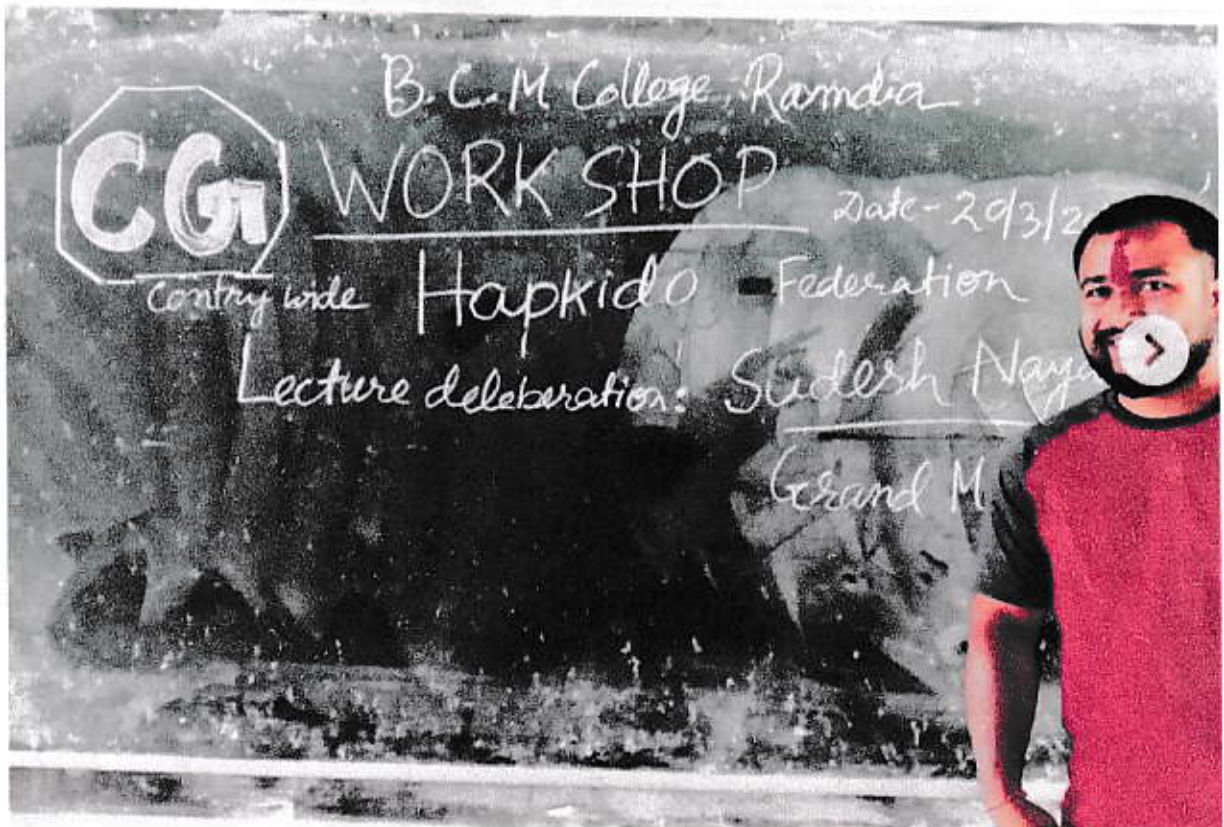 B. C. M College, Ramdia
CG WORK SHOP
Date - 20/3/2
contry wide Hapkido Federation
Lecture deleberation: Sudesh Naya
Grand M